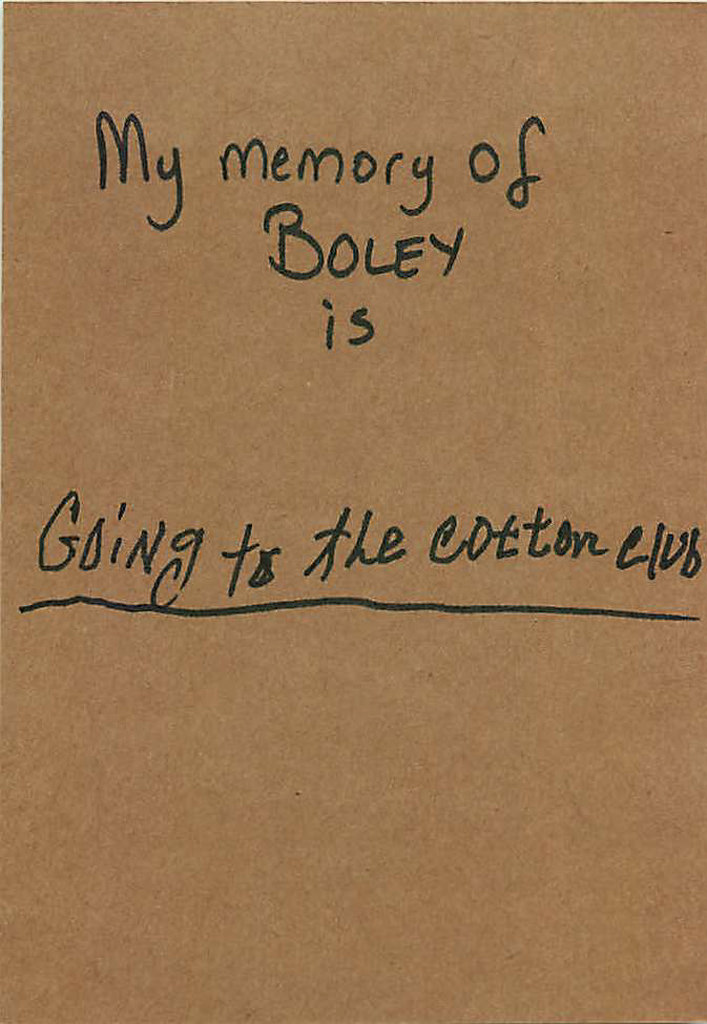 My memory of
BOLEY
is
Going to the cotton club